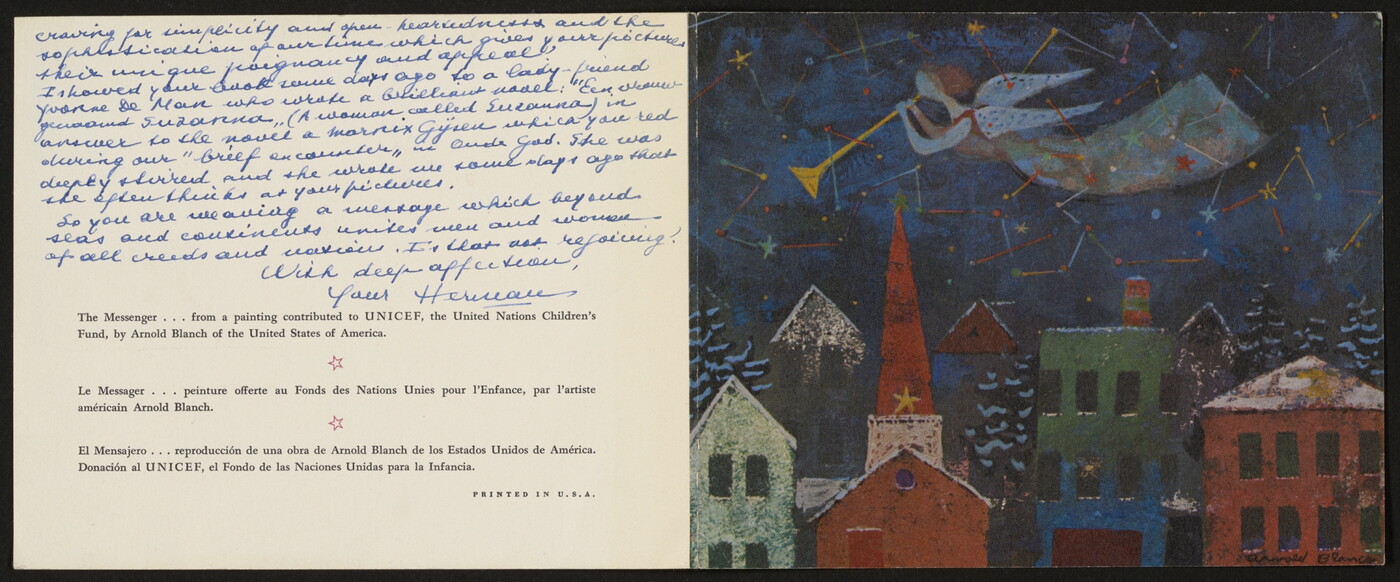 craving for simplicity and open-heartedness and the
sophistication of our time which gives your pictures
their unique poignancy and appeal!
I showed your book some days ago to a lady-friend
Yvonne De Man who wrote a brilliant novel: "Een vrouw
genaamd Suzanna„ (A woman called Suzanna) in
answer to the novel a Marnix Gijsen which you red
during our "brief encounter„ in Oude God. She was
deeply stirred and she wrote me some days ago that
she often thinks at your pictures.
So you are weaving a message which beyond
seas and continents unites men and women
of all creeds and nations. Is that not rejoicing!
With deep affection,
Your Herman
The Messenger . . . from a painting contributed to UNICEF, the United Nations Children's
Fund, by Arnold Blanch of the United States of America.
Le Messager . . . peinture offerte au Fonds des Nations Unies pour l'Enfance, par l'artiste
américain Arnold Blanch.
El Mensajero . . . reproducción de una obra de Arnold Blanch de los Estados Unidos de América.
Donación al UNICEF, el Fondo de las Naciones Unidas para la Infancia.
PRINTED IN U.S.A.
Arnold Blanch